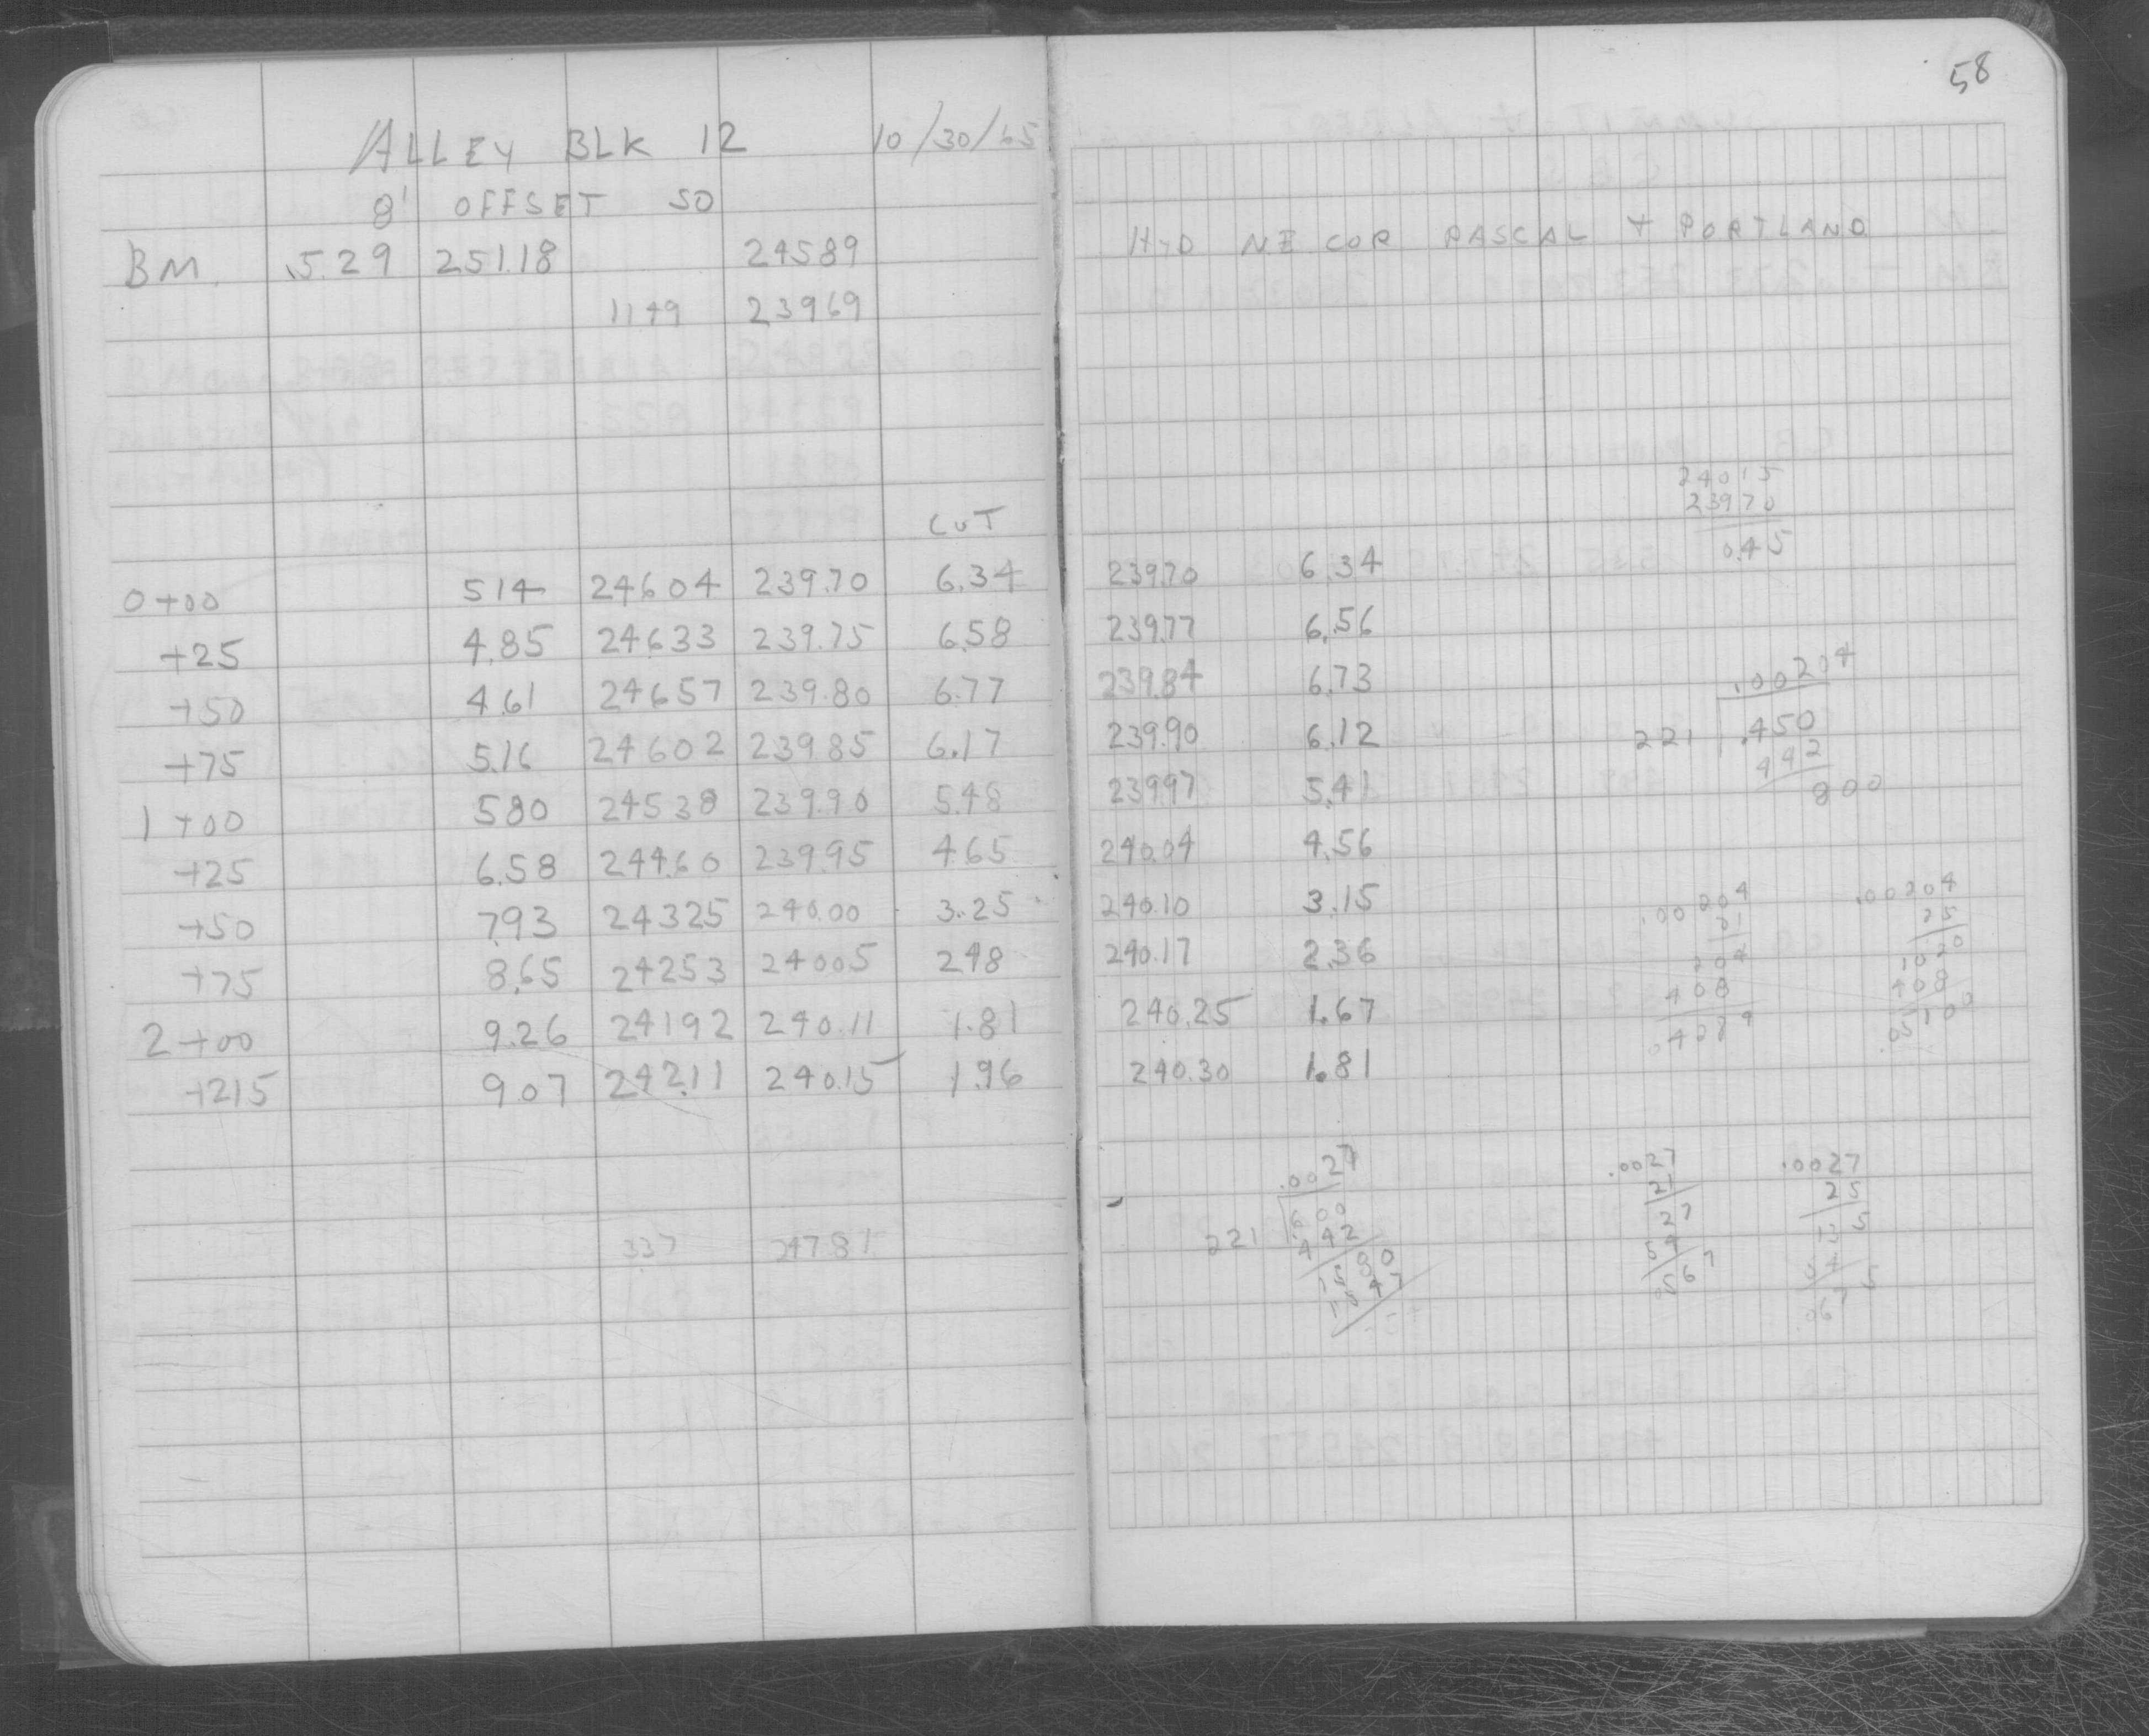 ALLEY BLK 12 10/30/65
8' OFFSET SO
BM 5.29 251.18 24589
1149 23969
CUT
0+00 514 24604 239.70 6.34
+25 4.85 24633 239.75 6.58
+50 4.61 24657 239.80 6.77
+75 5.16 24602 239.85 6.17
1+00 580 24538 239.90 5.48
+25 6.58 24460 239.95 4.65
+50 7.93 24325 240.00 3.25
+75 8.65 24253 24005 248
2+00 9.26 24192 240.11 1.81
+215 9.07 242.11 240.15 1.96
337 24781
58
HYD NE COR PASCAL + PORTLAND
24015
23970
045
239.70 6.34
239.77 6.56
239.84 6.73
239.90 6.12
239.97 5.41
240.04 4.56
240.10 3.15
240.17 2.36
240.25 1.67
240.30 1.81
.00204
221 .450
442
800
.00204
21
204
408
04284
.00204
25
1020
408
.05100
.0027
221 .600
442
1580
1547
.0027
21
27
54
.0567
.0027
25
135
54
.0675